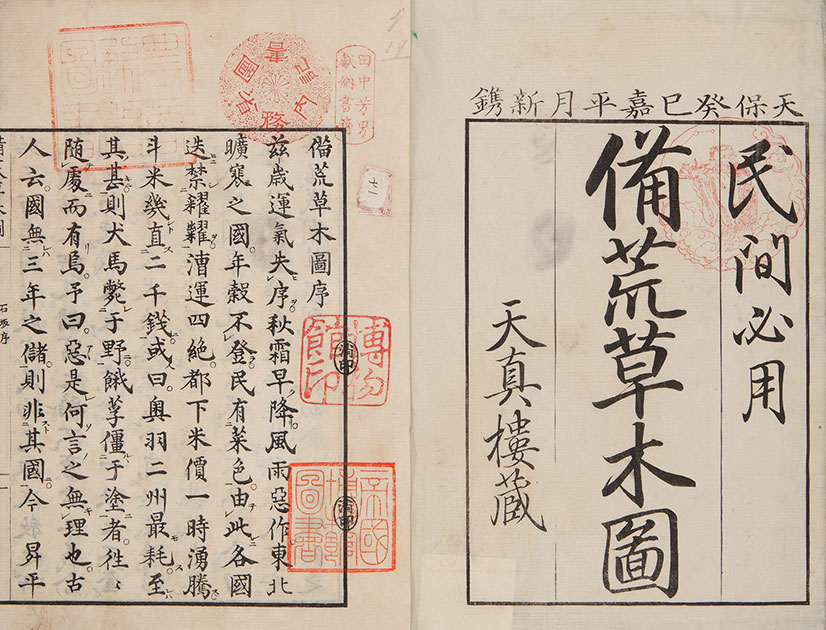 天保癸巳嘉平月新鐫
民間必用
備荒草木圖
天真樓藏
七一
田中芳男
獻納書籍
博物館印
消印
帝國博物館圖書
消印
備荒草木圖序
茲歳運氣失序秋霜早降風雨惡作東北
曠寒之國年穀不登民有菜色由此各國
迭禁糴糶漕運四絶都下米價一時湧騰
斗米幾直二千錢或曰奥羽二州最耗至
其甚則犬馬斃于野餓莩僵于塗者徃〻
随處而有焉予曰惡是何言之無理也古
人云國無三年之儲則非其國今 昇平